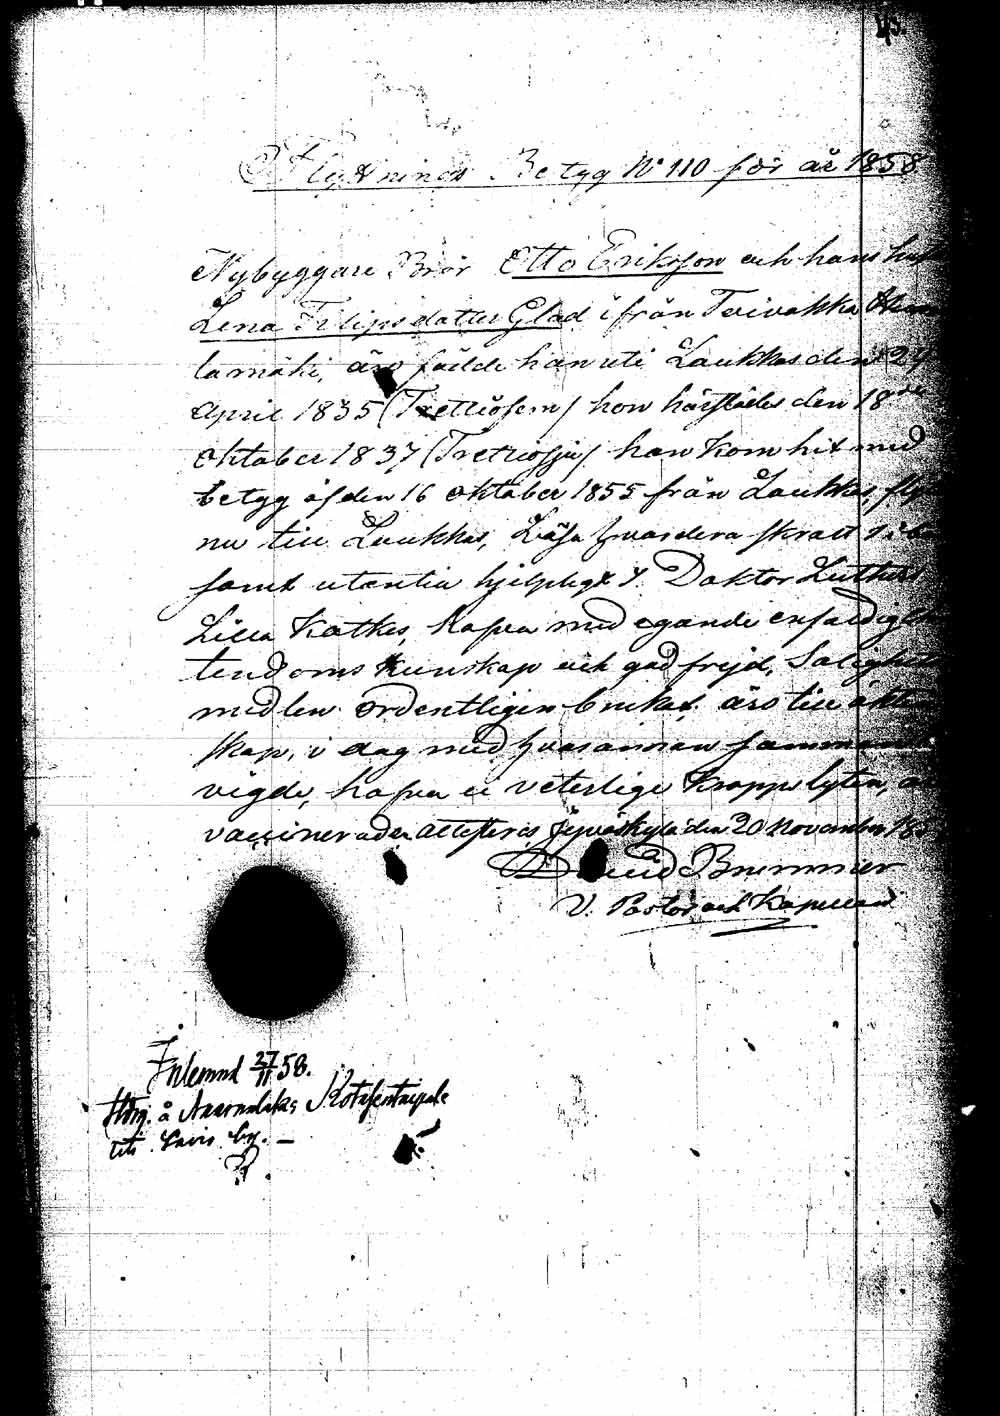 45.
Flyttnings Betyg No 110 för år 1858
Nybyggare Bror Otto Eriksson och hans hust
Lena Filipsdotter Glad ifrån Toivakka
lamäki, äro födde han uti Laukkas den 24
April 1835 (Trettiofem) hon härstädes den 18de
Oktober 1837 (Trettiosju) han kom hit med
betyg af den 16 Oktober 1855 från Laukkas, fly
nu till Laukkas, Läsa hvardera svart i bo
samt utantia hjelpligt Doktor Luthers
Lilla Katkes, hafva med egande enfaldig
tendoms kunskap och god frejd, Salighets
medlen ordentligen brukat, äro till äkten
skap, i dag med hvarannan samman
vigde, hafva ei veterlige kroppslyten,
vaccinerade attesteras Jyväskylä den 20 November 185
David Brummer
V. Pastor och Kapellan
Inlemnd 27/11 58.
uti Lavis by. —